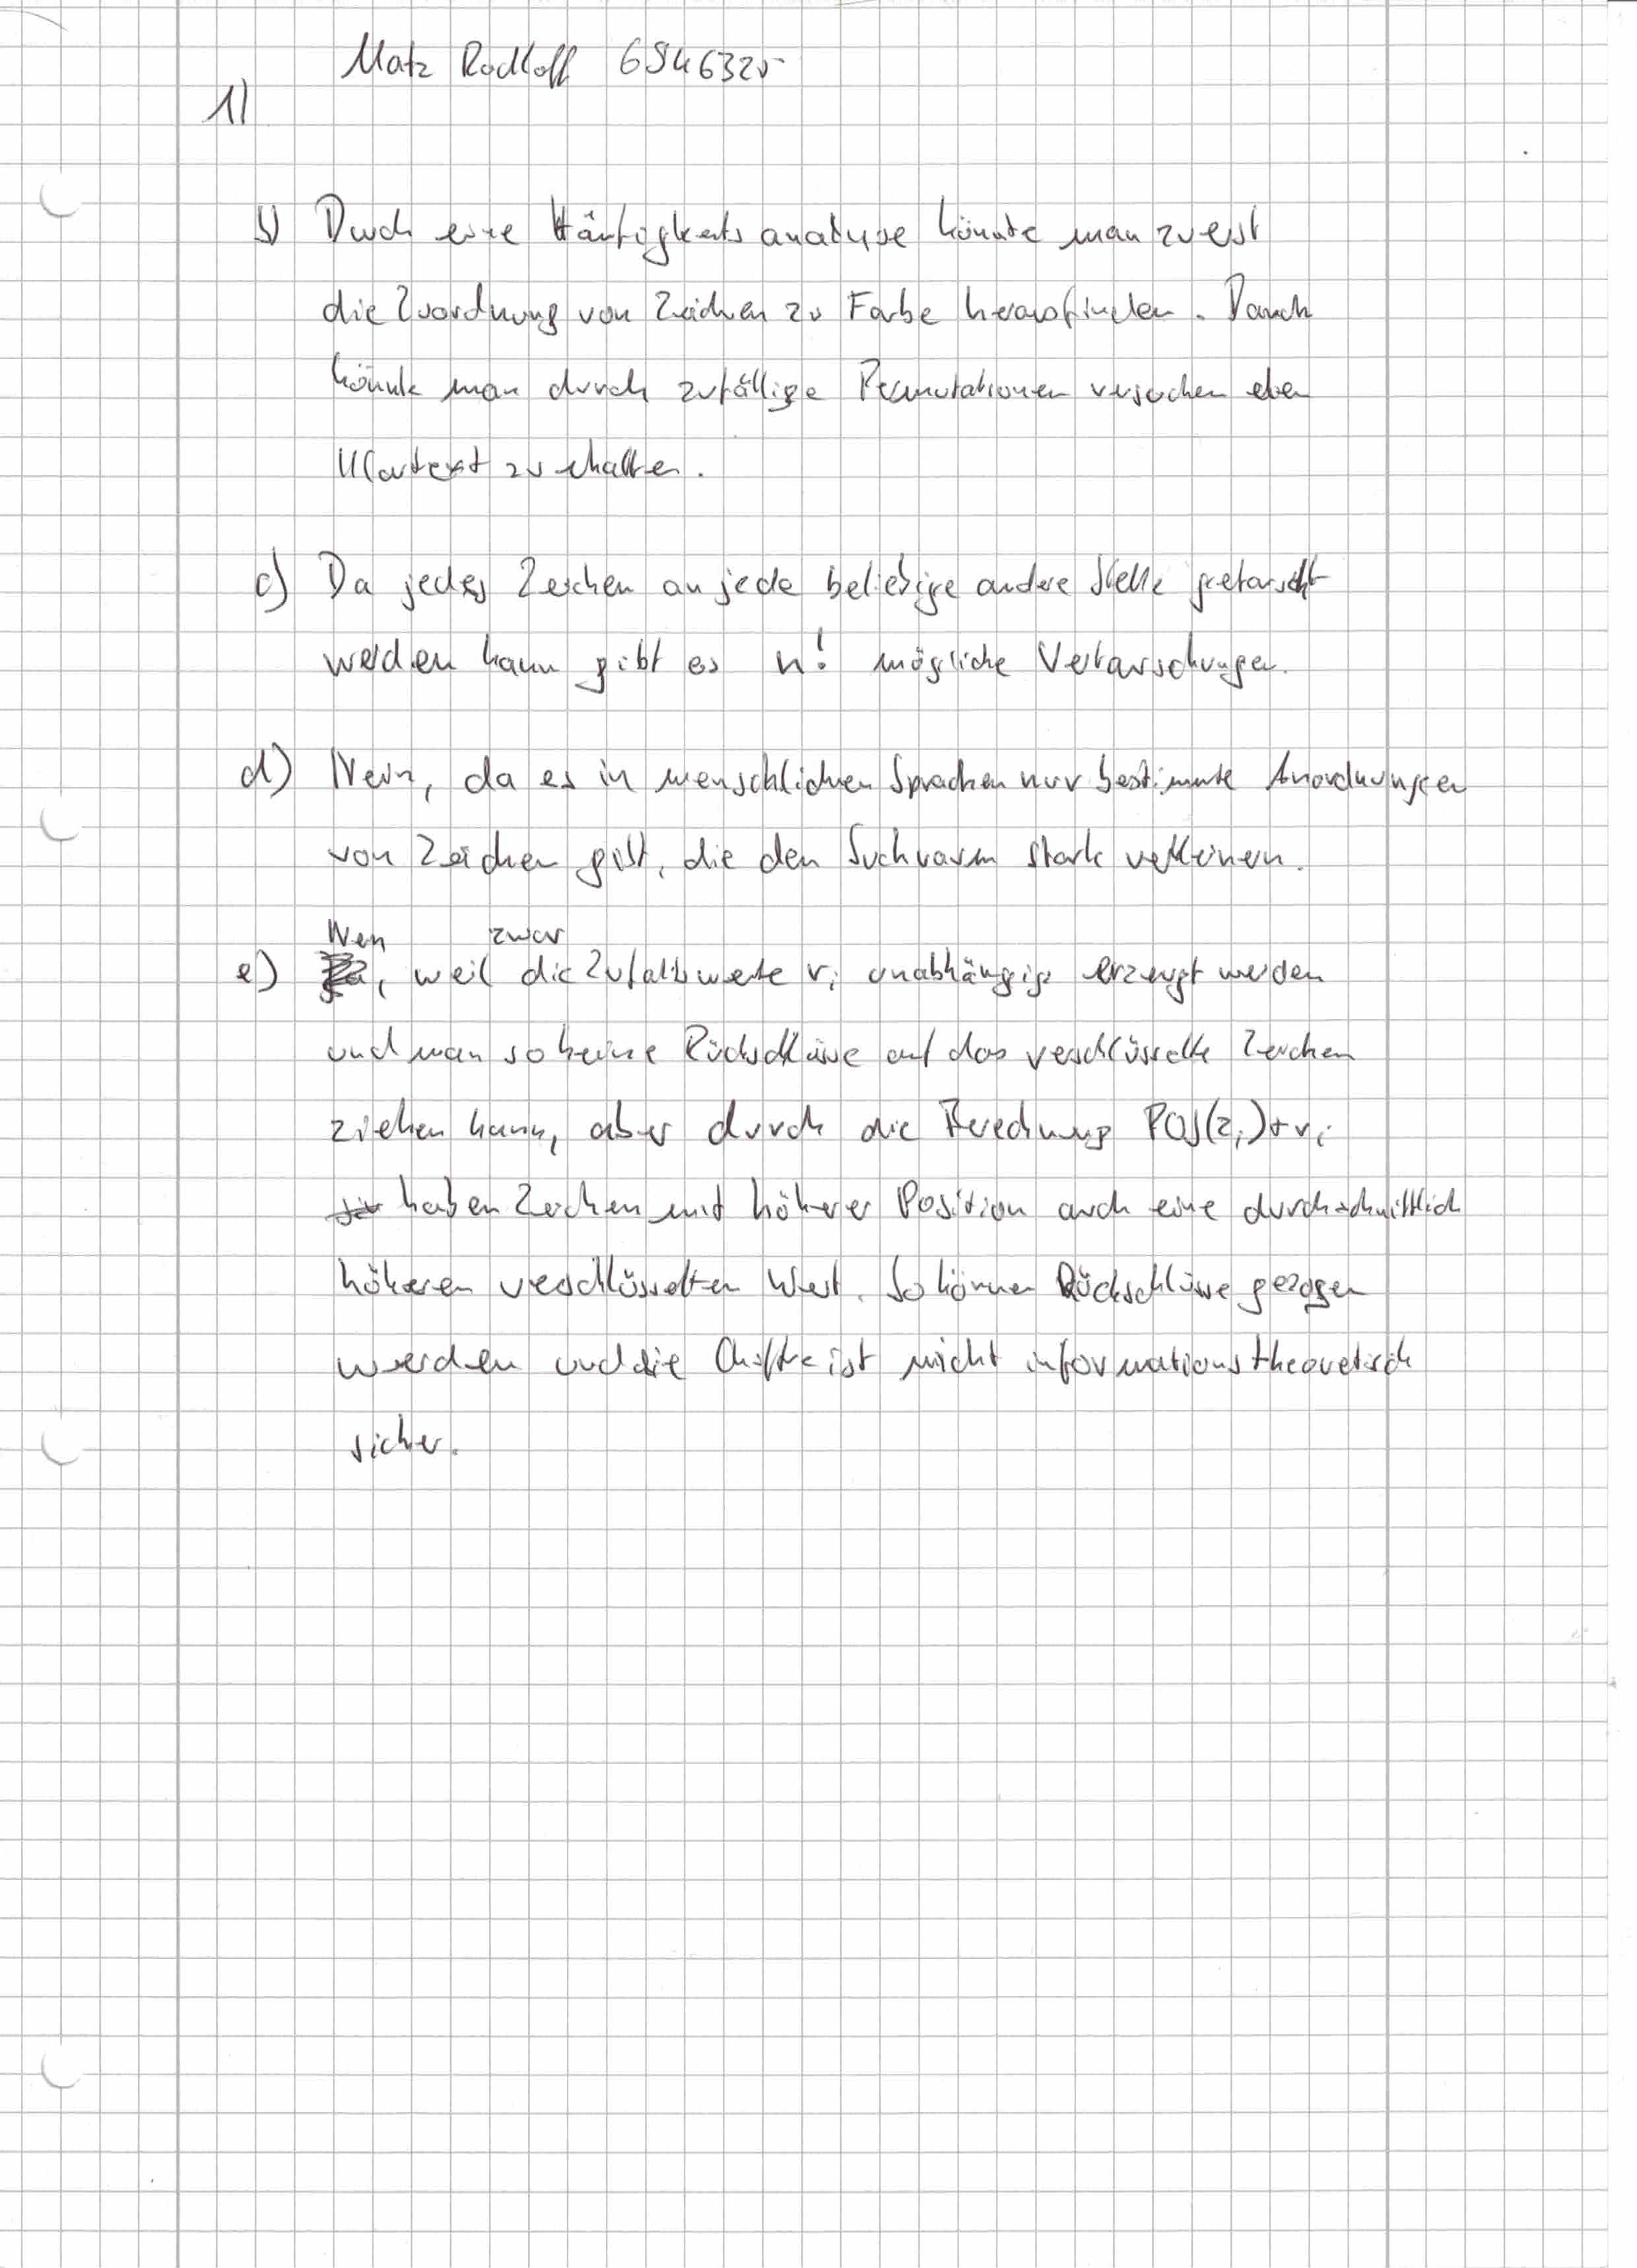 Matz Radloff 6946325
1)
b) Durch eine Häufigkeitsanalyse könnte man zuerst
die Zuordnung von Zeichen zu Farbe herausfinden. Danach
könnte man durch zufällige Permutationen versuchen
Klartext zu erhalten.
c) Da jedes Zeichen an jede beliebige andere Stelle getauscht
werden kann gibt es n! mögliche Vertauschungen.
d) Nein, da es in menschlichen Sprachen nur bestimmte Anordnungen
von Zeichen gibt, die den Suchraum stark verkleinern.
e) Nein, weil zwar die Zufallswerte ri unabhängig erzeugt werden
und man so keine Rückschlüsse auf das verschlüsselte Zeichen
ziehen kann, aber durch die Berechnung POS(zi)+ri
haben Zeichen mit höherer Position auch eine durchschnittlich
höheren verschlüsselten Wert. So können Rückschlüsse gezogen
werden und die Chiffre ist nicht informationstheoretisch
sicher.